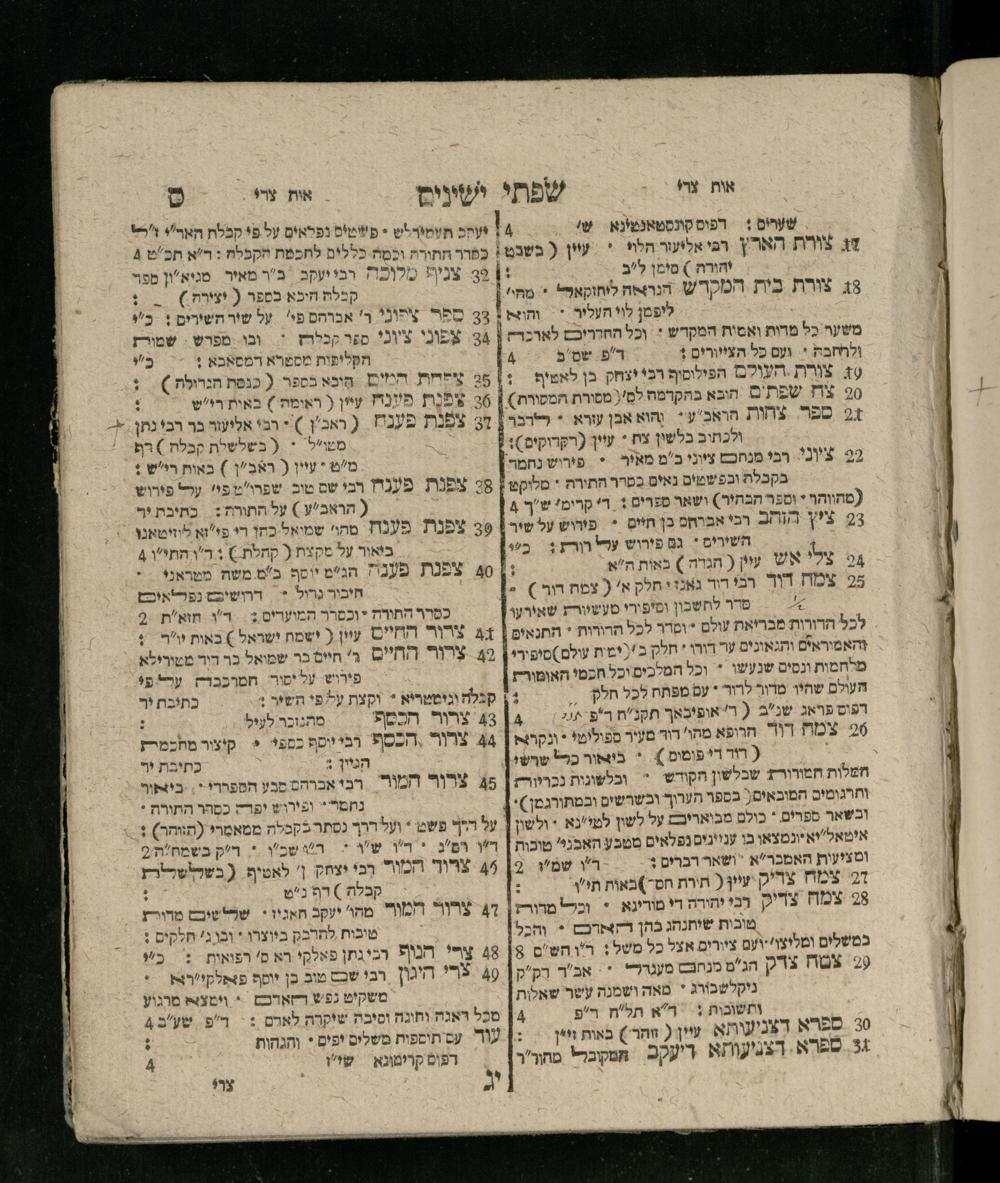 אות צרי
שפתי ישינים
אות צרי
ס
שערים : דפוס קונסטאנטינא ש' 4
17 צורת הארץ רבי אליעזר הלוי · עיין ( בשבט
יהודה ) סימן ל"ב :
18 צורת בית המקדש הנראה ליחזקאל · מהי'
ליפמן לוי העליר · והוא
משער כל מדות ואמית המקדש · וכל החדרים לארכה
ולרחבה · ועם כל הציורים : ד"פ שס"ב 4
19 צורת העולם הפילוסוף רבי יצחק בן לאטיף :
20 צח שפתים הובא בהקדמה לס' (מסורת המסורת)
21 ספר צחות הראב"ע · והוא אבן עזרא · לדבר
ולכתוב בלשון צח · עיין (דקדוקים) :
22 ציוני רבי מנחם ציוני ב"מ מאיר · פירוש נחמד
בקבלה ובפשטים נאים כסדר התורה · מלוקט
(מהזוהר · וספר הבהיר) ושאר ספרים : ד' קרימ' ש"ך 4
23 ציץ הזהב רבי אברהם בן חיים · פירוש על שיר
השירים · גם פירוש על רות : כ"י
24 צלי אש עיין ( הגדה ) באות ה"א :
25 צמח דוד רבי דוד גאנז · חלק א' ( צמח דוד ) ·
סדר לחשבון וסיפורי מעשיות שאירעו
לכל הדורות מבריאת עולם · וסדר לכל הדורות · התנאים
והאמוראים והגאונים עד דורו · חלק ב' (ימות עולם) סיפורי
מלחמות ונסים שנעשו · וכל המלכים וכל חכמי האומות
העולם שהיו מדור לדור · עם מפתח לכל חלק :
דפוס פראג שנ"ב ( ד' אופיבאך תקנ"ח ד"פ 4
26 צמח דוד הרופא מהו' דוד מעיר ספוליטי · ונקרא
( דוד די פומים ) · ביאור כל שרשי
המלות חמורות שבלשון הקודש · ובלשונות נכריות
ותרגומים המובאים ( בספר הערוך ובשרשים ובמתורגמן) ·
ובשאר ספרים · כולם מבוארים על לשון לטי"נא · ולשון
איטאל"יא ונמצאו בו ענינים נפלאים מטבע האבני' טובות
ומציעות האמבר"א · ושאר דברים : ד"ו שמ"ז 2
27 צמח צדיק עיין ( תורת חסד ) באות תי"ו :
28 צמח צדיק רבי יהודה די מודינא · וכל מדות
טובות שיתנהג בהן האדם · והכל
במשלים ומליצו' ועם ציורים אצל כל משל : ד"ו הש"ס 8
29 צמח צדק הג"מ מנחם מענדל · אב"ד דק"ק
ניקלשבורג · מאה ושמנה עשר שאלות
ותשובות : ד"א תל"ה ד"פ 4
30 ספרא דצניעותא עיין ( זוהר ) באות זיי"ן :
31 ספרא דצניעותא דיעקב המקובל מהור"ר
יעקב תעמירלש · פשטים נפלאים על פי קבלת האר"י ז"ל
כסדר התורה וכמה כללים לחכמת הקבלה : ד"א תכ"ט 4
32 צניף מלוכה רבי יעקב ב"ר מאיר מגיא"ון ספר
קבלה הובא בספר ( יצירה ) :
33 ספר צפוני ר' אברהם פי' על שיר השירים : כ"י
34 צפוני ציוני ספר קבלה · ובו מפרש שמות
הקליפות מסטרא דמסאבא : כ"י
35 צפחת המים הובא בספר ( כנסת הגדולה ) :
36 צפנת פענח עיין ( ראומה ) באות רי"ש :
37 צפנת פענח ( ראב"ן ) · רבי אליעזר בר רבי נתן
מטו"ל · ( בשלשלת קבלה ) דף
מ"ט · עיין ( ראב"ן ) באות רי"ש :
38 צפנת פענח רבי שם טוב שפרו"ט פי' על פירוש
(הראב"ע ) על התורה : כתיבת יד
39 צפנת פענח מהו' שמואל כהן די פי"זא ליזיטאנו
ביאור על מקצת ( קהלת ) : ד"ו התי"ו 4
40 צפנת פענח הג"ט יוסף ב"מ משה מטראני ·
חיבור גדול · דרושים נפלאים
כסדר התורה · וכסדר המועדים : ד"ו חזא"ת 2
41 צרור החיים עיין ( ישמח ישראל ) באות יו"ד :
42 צרור החיים ר' חיים בר שמואל בר דוד מטודילא
פירוש על יסוד המרכבה על פי
קבלה וגימטריא · וקצת על פי השיר : כתיבת יד
43 צרור הכסף מהנזכר לעיל :
44 צרור הכסף רבי יוסף כספי · קיצור מחכמת
הגיון : כתיבת יד
45 צרור המור רבי אברהם סבע הספרדי · ביאור
נחמד · ופירוש יפה כסדר התורה ·
על דרך פשט · ועל דרך נסתר בקבלה ממאמרי (הזוהר) :
ד"ו רפ"ג · ד"ו ש"ו · ד"ו שכ"ו · ד"ק בשמח"ה 2
46 צרור המור רבי יצחק ן' לאטיף ( בשלשלת
קבלה ) דף נ"ט :
47 צרור המור מהו' יעקב חאגיז · שלשים מדות
טובות להדבק ביוצרו · ובו ג' חלקים :
48 צרי הגוף רבי נתן פאלקירא ס' רפואות : כ"י
49 צרי היגון רבי שם טוב בן יוסף פאלקי"רא ·
משקיט נפש האדם · וימצא מרגוע
מכל דאגה ותוגה וסיבה שיקרה לאדם : ד"פ שע"ב 4
עוד עם תוספות משלים יפים · והגהות :
דפוס קרימונא שי"ז 4
יג
צרי